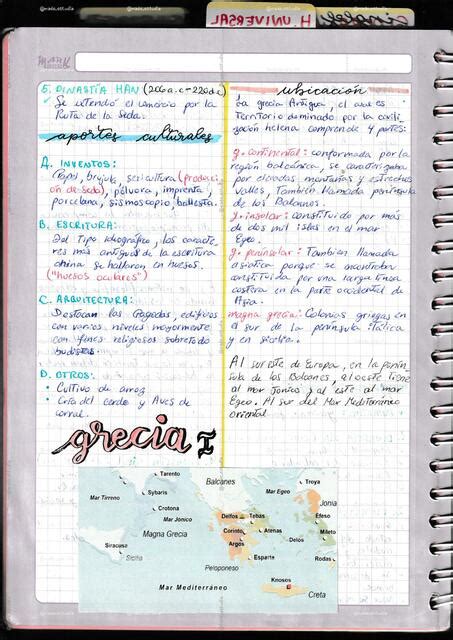 @nads.estudia
@nads.estudia
H. UNIVERSAL
5. DINASTÍA HAN (206 a.c - 220 d.c)
✓ Se extendió el comercio por la
Ruta de la Seda.
aportes culturales
A. INVENTOS:
Papel, brujula, sericultura (producci-
ón de seda), pólvora, imprenta y
porcelana, sismoscopio, ballesta.
B. ESCRITURA:
Del Tipo ideográfico, los caracte
res más antiguos de la escritura
china se hallaron en huesos.
("huesos oculares")
C. ARQUITECTURA:
Destacan las Pagodas, edificios
con varios niveles mayormente
con fines religiosos sobretodo
budistas.
D. OTROS:
• Cultivo de arroz
• Cría del cerdo y Aves de
corral.
ubicación
La grecia Antigua, el area es
Territorio dominado por la civili
zación helena comprende 4 partes:
g. continental: conformada por la
región balcánica, se caracterizaba
por elevadas montañas y estrechos
valles, También llamada península
de los Balcanes.
g. insular: constituida por más
de dos mil islas en el mar
Egeo.
g. peninsular: También llamada
asiatica porque se encontraba
constituida por una larga linea
costera en la parte occidental de
Asia.
magna grecia: Colonias griegas en
el sur de la península itálica
y en sicilia.
Al sureste de Europa, en la penín
sula de los Balcanes, al oeste tiene
al mar Jonico y al este al mar
Egeo. Al sur del Mar Mediterráneo
oriental
grecia I
Tarento
Balcanes
Troya
Mar Tirreno
Sybaris
Mar Egeo
Crotona
Jonia
Mar Jónico
Delfos
Tebas
Efeso
Magna Grecia
Corinto
Atenas
Mileto
Siracusa
Argos
Delos
Sicilia
Esparta
Rodas
Peloponeso
Mar Mediterráneo
Knosos
Creta
@nads.estudia
@nads.estudia